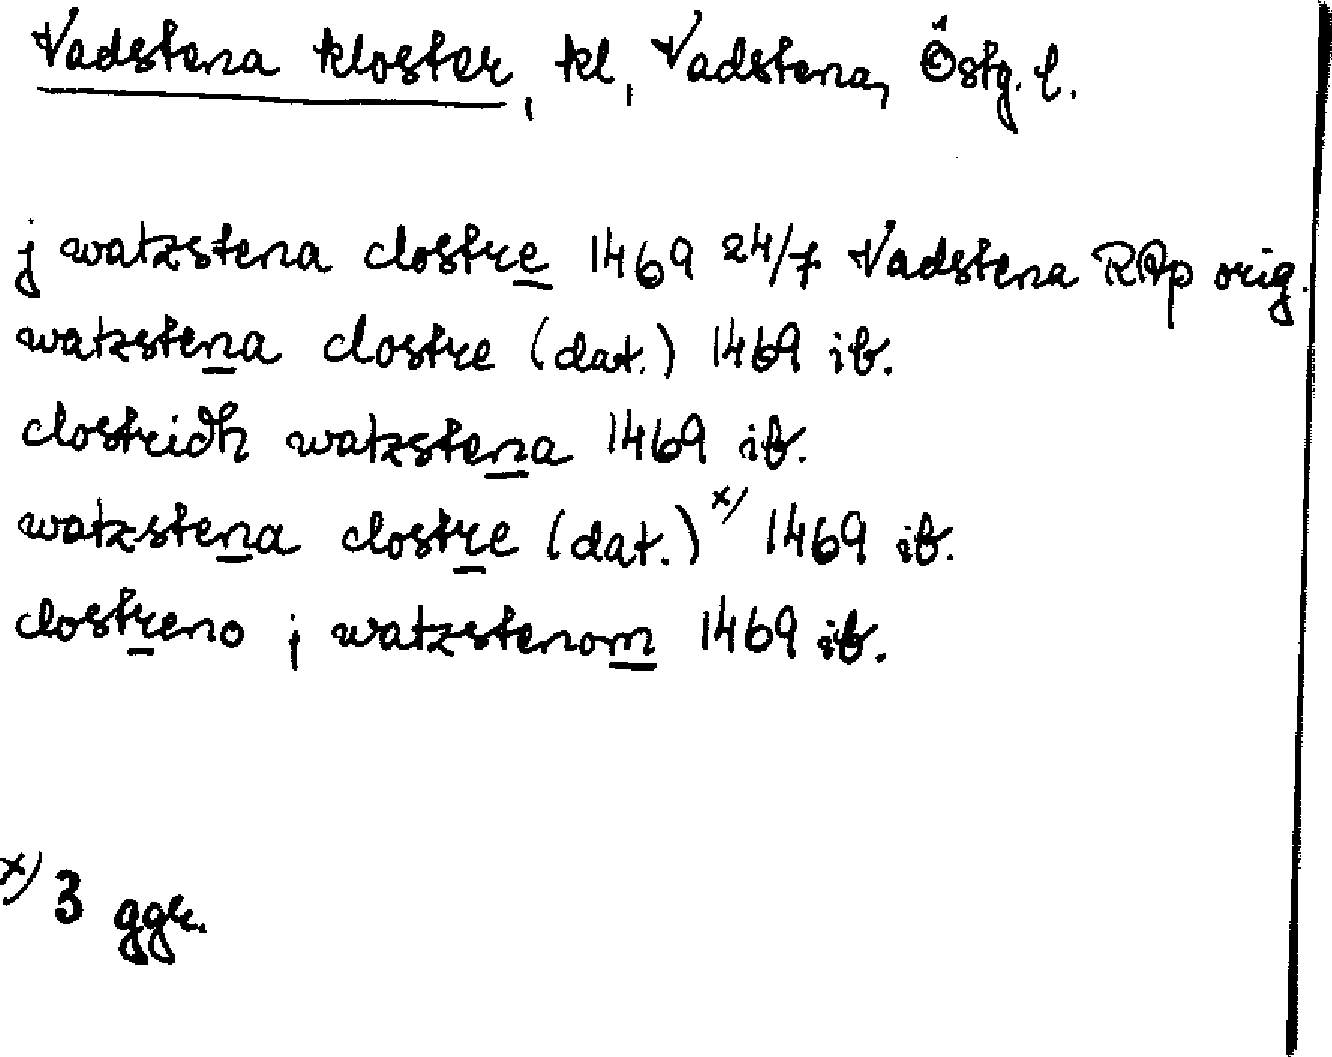 Vadstena kloster, kl, Vadstena, Östg. l.
j watzstena clostre 1469 24/7 Vadstena RAp orig.
watzstena clostre (dat.) 1469 ib.
clostridh watzstena 1469 ib.
watzstena clostre (dat.) x) 1469 ib.
clostreno j watzstenom 1469 ib.
x) 3 ggr.